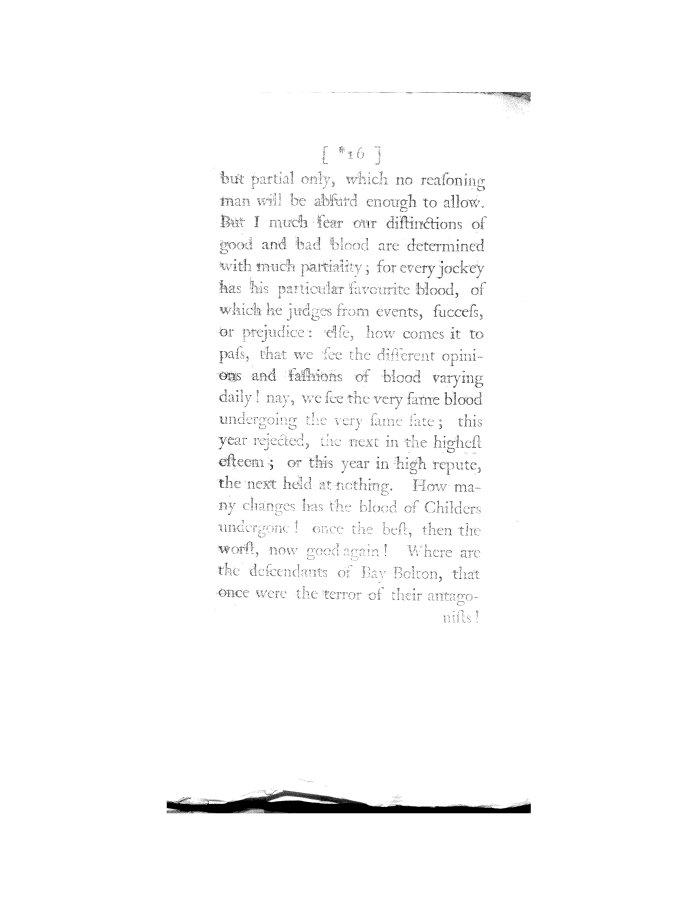 [ *16 ]
but partial only, which no reaſoning
man will be abſurd enough to allow.
But I much fear our diſtinctions of
good and bad blood are determined
with much partiality; for every jockey
has his particular favourite blood, of
which he judges from events, ſucceſs,
or prejudice: elſe, how comes it to
paſs, that we ſee the different opini-
ons and faſhions of blood varying
daily! nay, we ſee the very ſame blood
undergoing the very ſame fate; this
year rejected, the next in the higheſt
eſteem; or this year in high repute,
the next held at nothing. How ma-
ny changes has the blood of Childers
undergone! once the beſt, then the
worſt, now good again! Where are
the deſcendants of Bay Bolton, that
once were the terror of their antago-
niſts!